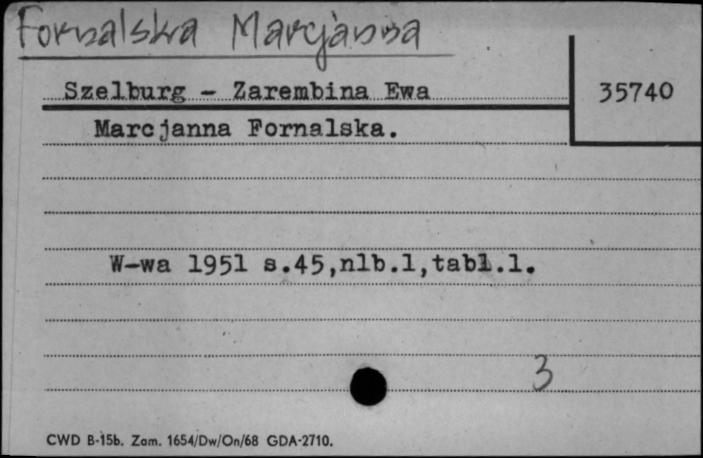 Fornalska Marcjanna
Szelburg - Zarembina Ewa
35740
Marcjanna Fornalska.
W-wa 1951 s.45,nlb.1,tabl.1.
3
CWD B-15b. Zam. 1654/Dw/On/68 GDA-2710.